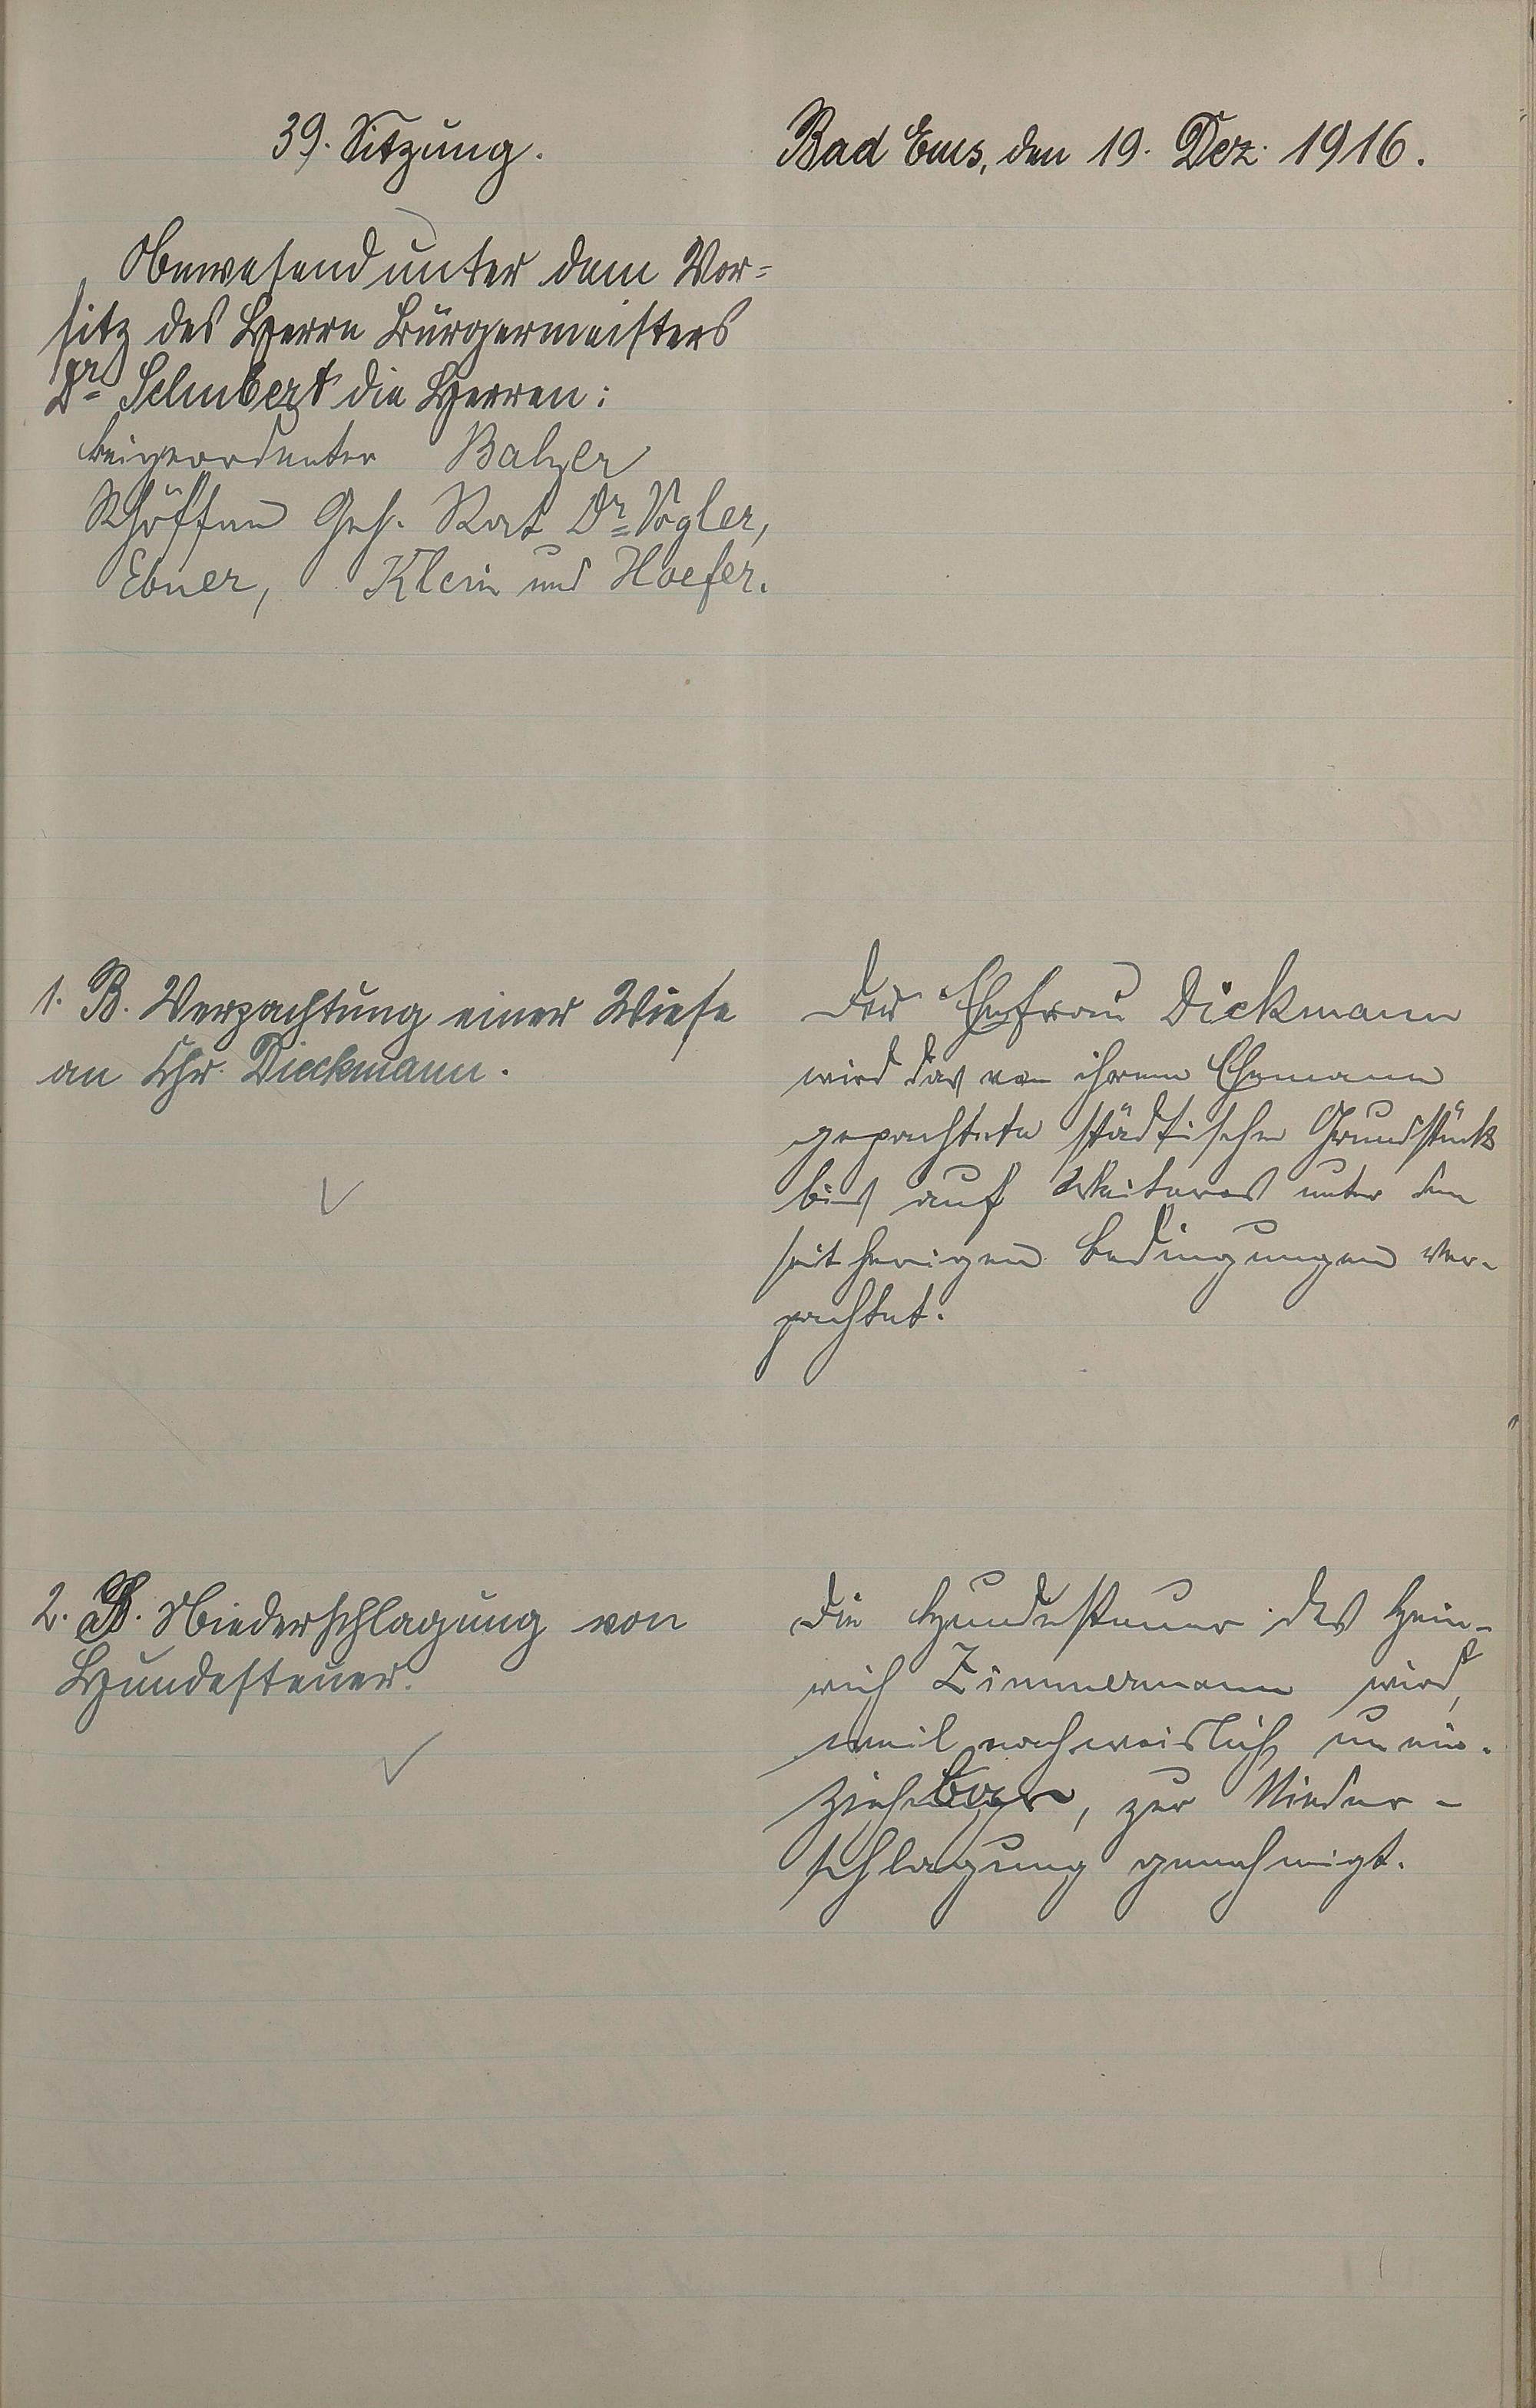 39. Sitzung.
Bad Ems, den 19. Dez. 1916.
Anwesend unter dem Vor-
sitz des Herrn Bürgermeisters
Dr. Schubert die Herren:
Beigeordneter Balzer
Schöffen Geh. Rat Dr. Vogler,
Ebner, Klein und Hoefer.
1. B. Verpachtung einer Wiese
an Chr. Dieckmann.
Der Ehefrau Dickmann
wird das von ihrem Ehemann
gepachtete städtische Grundstück
bis auf Weiteres unter den
seitherigen Bedingungen ver-
pachtet.
2. B. Niederschlagung von
Hundesteuer.
Die Hundesteuer des Hein-
rich Zimmermann wird,
weil nachweislich unein-
ziehbar, zur Nieder-
schlagung genehmigt.